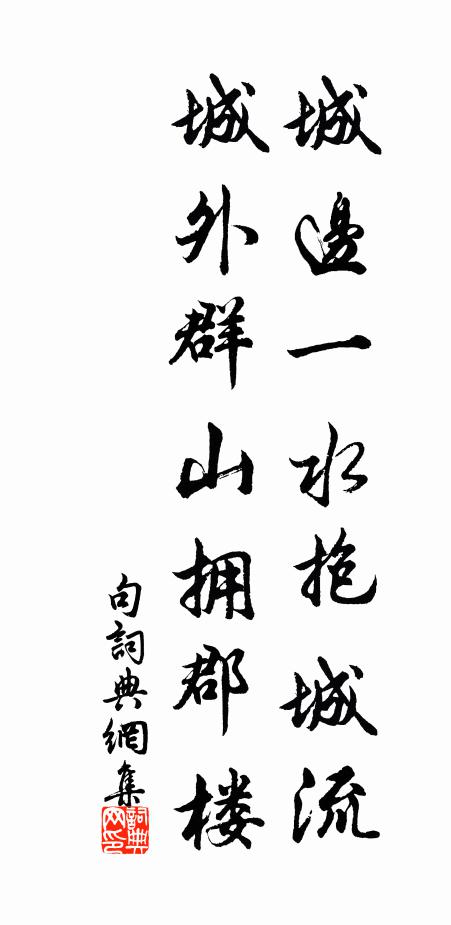 城邊一水抱城流
城外群山拥郡楼
句詞典網集
詞典
网印